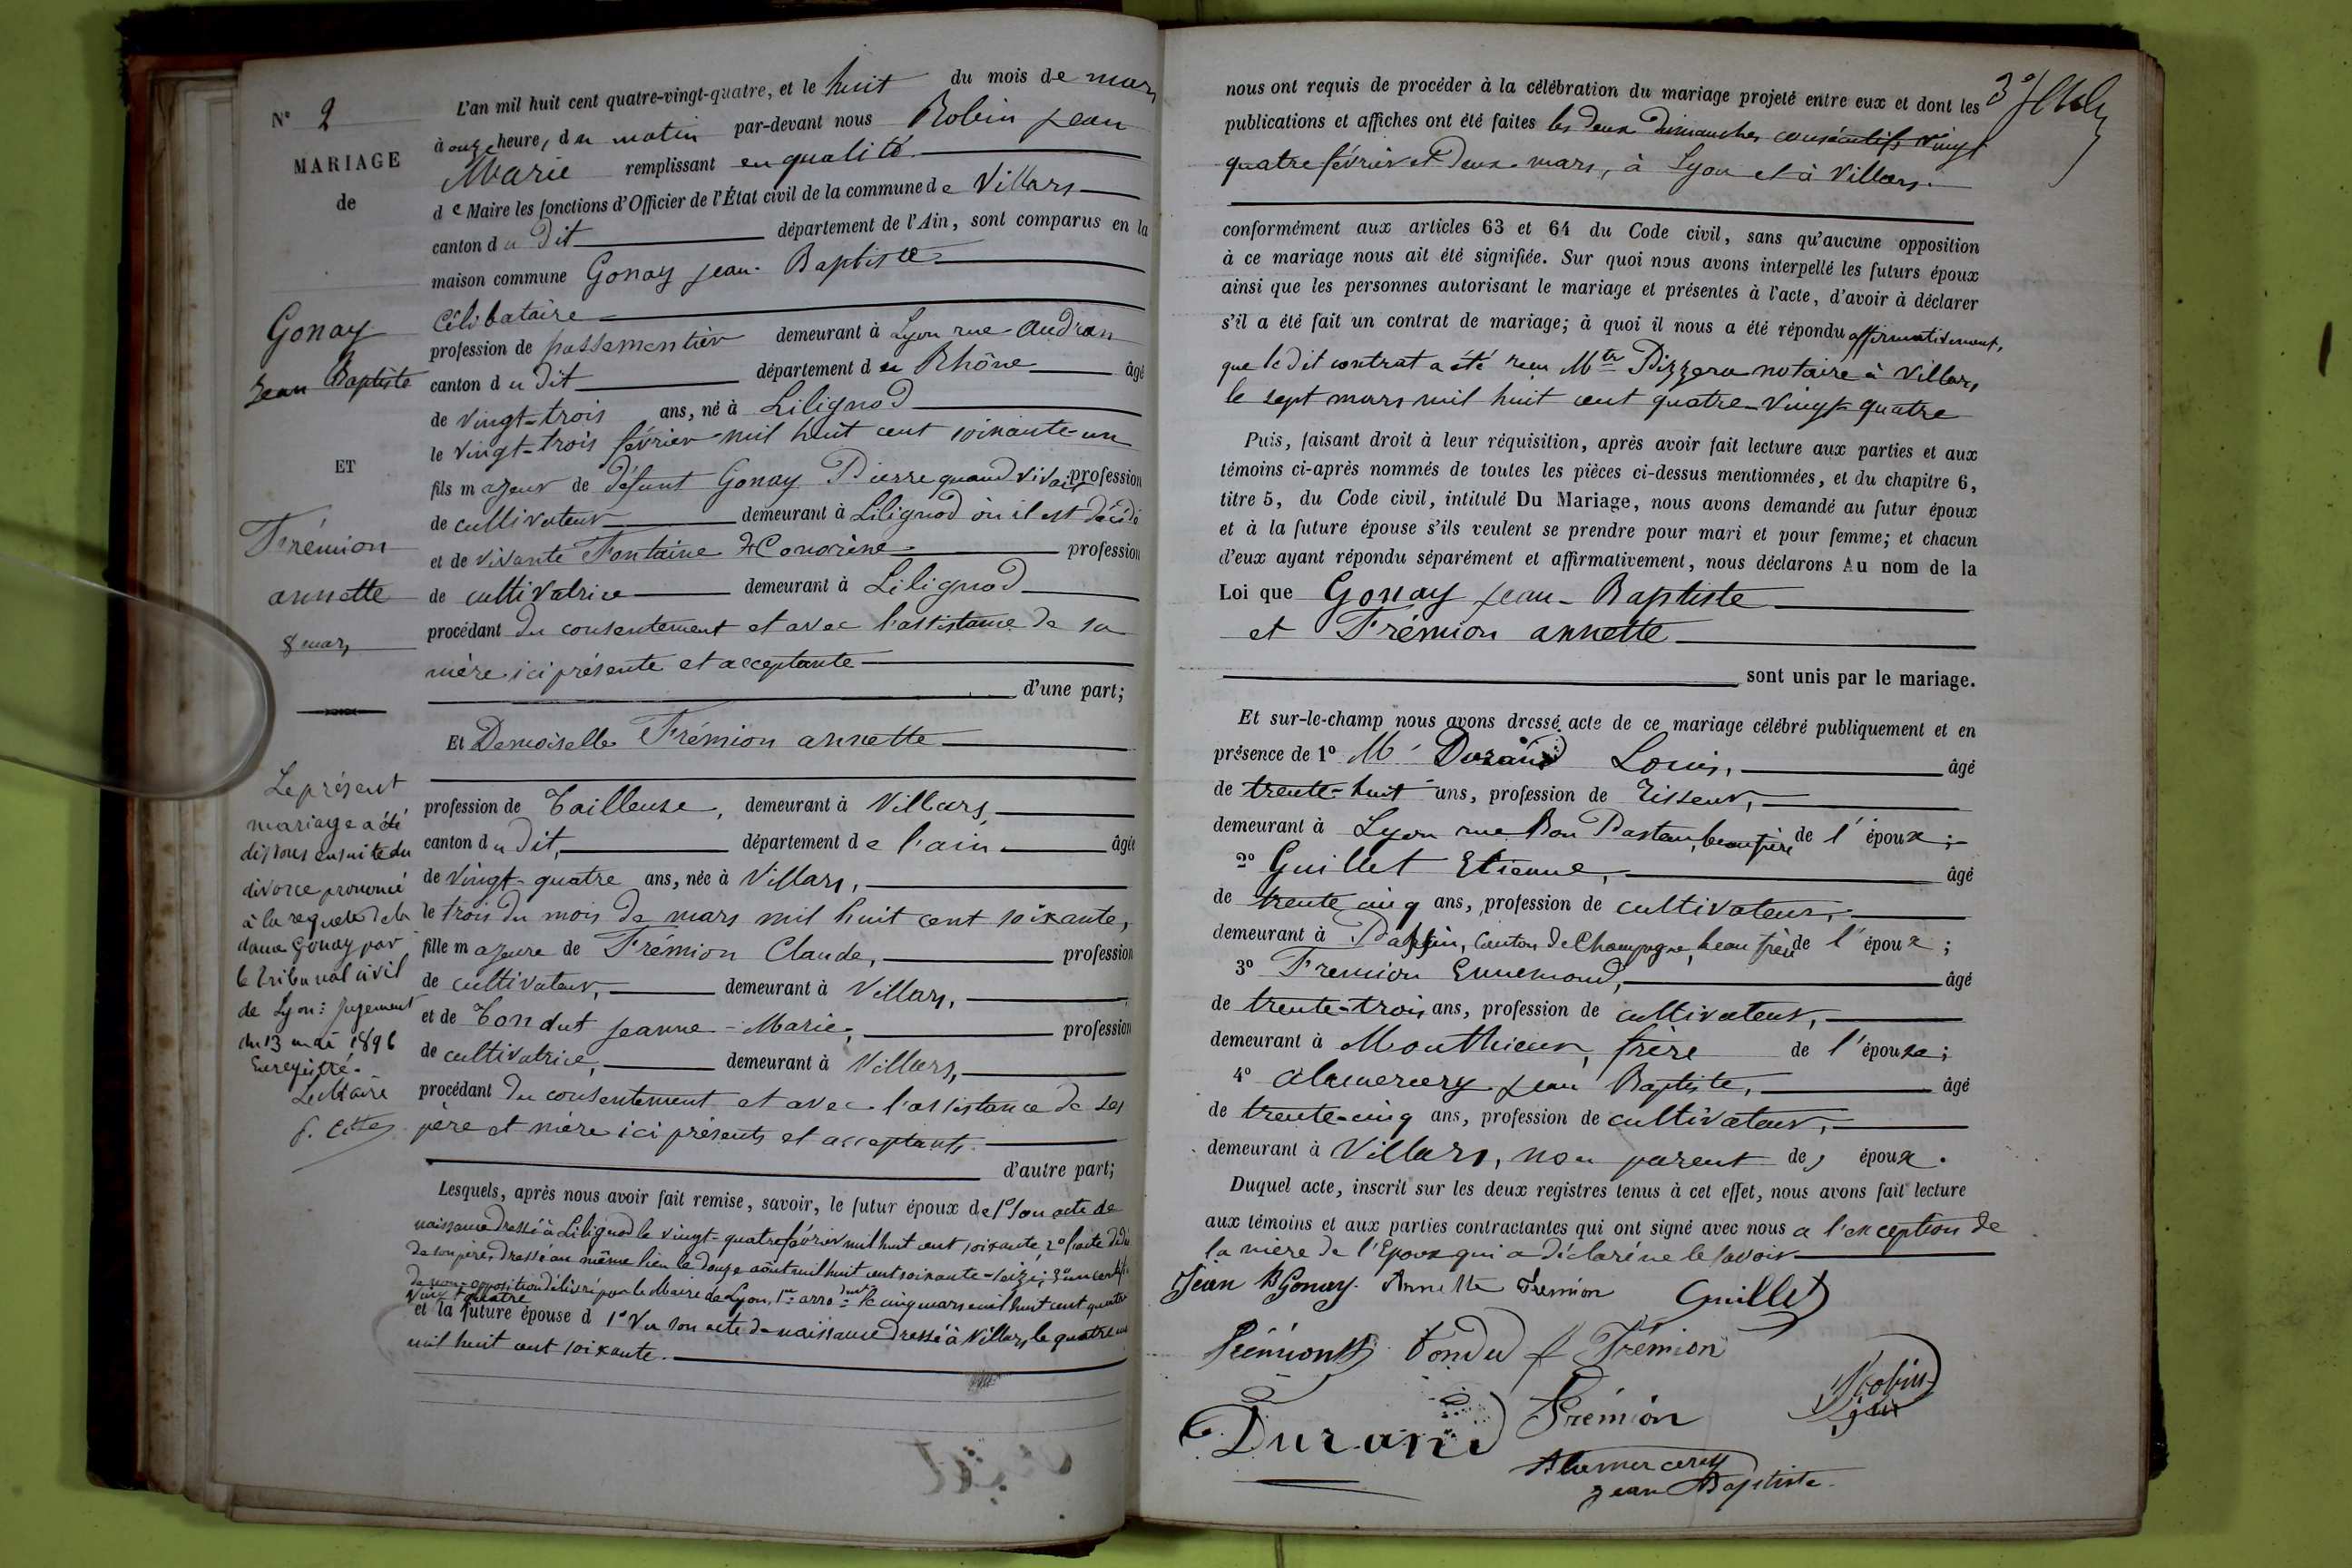 N° 2
MARIAGE
de
Gonay
Jean Baptiste
ET
Frémion
annette
8 mars
Le présent
mariage a été
dissous ensuite du
divorce prononcé
à la requete de la
dame Gonay par
le tribunal civil
de Lyon: jugement
du 13 mai 1896
Enregistré.
Le Maire
L'an mil huit cent quatre-vingt-quatre, et le huit du mois de mars
à onze heure, du matin par-devant nous Robin Jean
Marie remplissant en qualité
de Maire les fonctions d'Officier de l'État civil de la commune de Villars
canton du dit département de l'Ain, sont comparus en la
maison commune Gonay Jean-Baptiste
Célibataire
profession de passementier demeurant à Lyon rue Audran
canton du dit département du Rhône âgé
de vingt-trois ans, né à Lilignod
le vingt-trois février mil huit cent soixante-un
fils majeur de défunt Gonay Pierre quand vivait profession
de cultivateur demeurant à Lilignod où il est décédé
et de vivante Fontaine profession
de cultivatrice demeurant à Lilignod
procédant du consentement et avec l'assistance de sa
mère ici présente et acceptante
d'une part;
Et Demoiselle Frémion annette
profession de Tailleuse, demeurant à Villars
canton du dit, département de l'ain âgée
de vingt-quatre ans, née à Villars,
le trois du mois de mars mil huit cent soixante,
fille majeure de Frémion Claude, profession
de cultivateur, demeurant à Villars,
et de Tondut Jeanne-Marie, profession
de cultivatrice, demeurant à Villars,
procédant du consentement et avec l'assistance de ses
père et mère ici présents et acceptants.
d'autre part;
Lesquels, après nous avoir fait remise, savoir, le futur époux de 1° Son acte de
naissance dressé à Lilignod le vingt-quatre février mil huit cent soixante, 2° l'acte de
de son père, dressé au même lieu le douze août mil huit cent soixante-seize; 3° un
de non-opposition délivré par le Maire de Lyon, 1er arrodmt le cinq mars mil huit cent quatre
vingt quatre
et la future épouse d 1° Vu son acte de naissance dressé à Villars le quatre
mil huit cent soixante.
nous ont requis de procéder à la célébration du mariage projeté entre eux et dont les
publications et affiches ont été faites les deux dimanches consécutifs vingt
quatre février et deux mars, à Lyon et à Villars.
conformément aux articles 63 et 64 du Code civil, sans qu'aucune opposition
à ce mariage nous ait été signifiée. Sur quoi nous avons interpellé les futurs époux
ainsi que les personnes autorisant le mariage et présentes à l'acte, d'avoir à déclarer
s'il a été fait un contrat de mariage; à quoi il nous a été répondu affirmativement,
que le dit contrat a été reçu Mtre Pizzera notaire à Villars,
le sept mars mil huit cent quatre-vingt-quatre
Puis, faisant droit à leur réquisition, après avoir fait lecture aux parties et aux
témoins ci-après nommés de toutes les pièces ci-dessus mentionnées, et du chapitre 6,
titre 5, du Code civil, intitulé Du Mariage, nous avons demandé au futur époux
et à la future épouse s'ils veulent se prendre pour mari et pour femme; et chacun
d'eux ayant répondu séparément et affirmativement, nous déclarons Au nom de la
Loi que Gonay Jean-Baptiste
et Frémion annette
sont unis par le mariage.
Et sur-le-champ nous avons dressé acte de ce mariage célébré publiquement et en
présence de 1° Mr Durand Louis, âgé
de trente-huit ans, profession de Tisseur,
demeurant à Lyon rue Bon Pasteur, beau frère de l'époux;
2° Guillet Etienne, âgé
de trente cinq ans, profession de cultivateur,
demeurant à Passin, Canton de Champagne, beau frère de l'époux;
3° Fremion Ennemond, âgé
de trente-trois ans, profession de cultivateur,
demeurant à Monthieux, frère de l'épouse;
4° Alumercery Jean Baptiste, âgé
de trente-cinq ans, profession de cultivateur,
demeurant à Villars, non parent des époux.
Duquel acte, inscrit sur les deux registres tenus à cet effet, nous avons fait lecture
aux témoins et aux parties contractantes qui ont signé avec nous a l'exception de
la mère de l'Epoux qui a déclaré ne le savoir
Jean B Gonay. Annette Fremion Guillet
Frémion Tondu f Frémion
Robin
Durand Frémion
Jean Baptiste